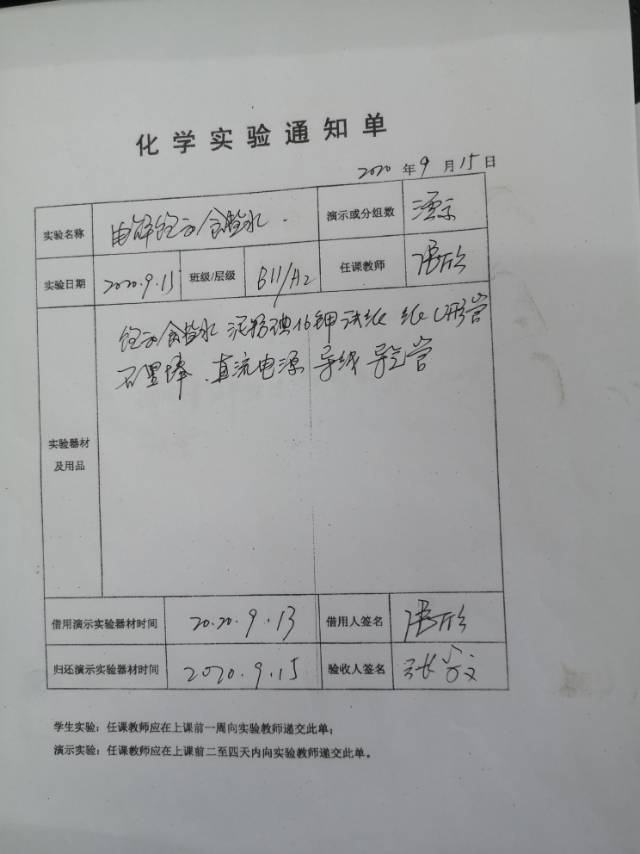 化学实验通知单
2020 年 9 月 15 日
实验名称 电解饱和食盐水. 演示或分组数 演示
实验日期 2020.9.15 班级/层级 B11/A2 任课教师
饱和食盐水 淀粉碘化钾试纸 U形管
石墨棒 直流电源 导线 导气管
实验器材
及用品
借用演示实验器材时间 2020.9.13 借用人签名
归还演示实验器材时间 2020.9.15 验收人签名 张
学生实验：任课教师应在上课前一周向实验教师递交此单；
演示实验：任课教师应在上课前二至四天内向实验教师递交此单。